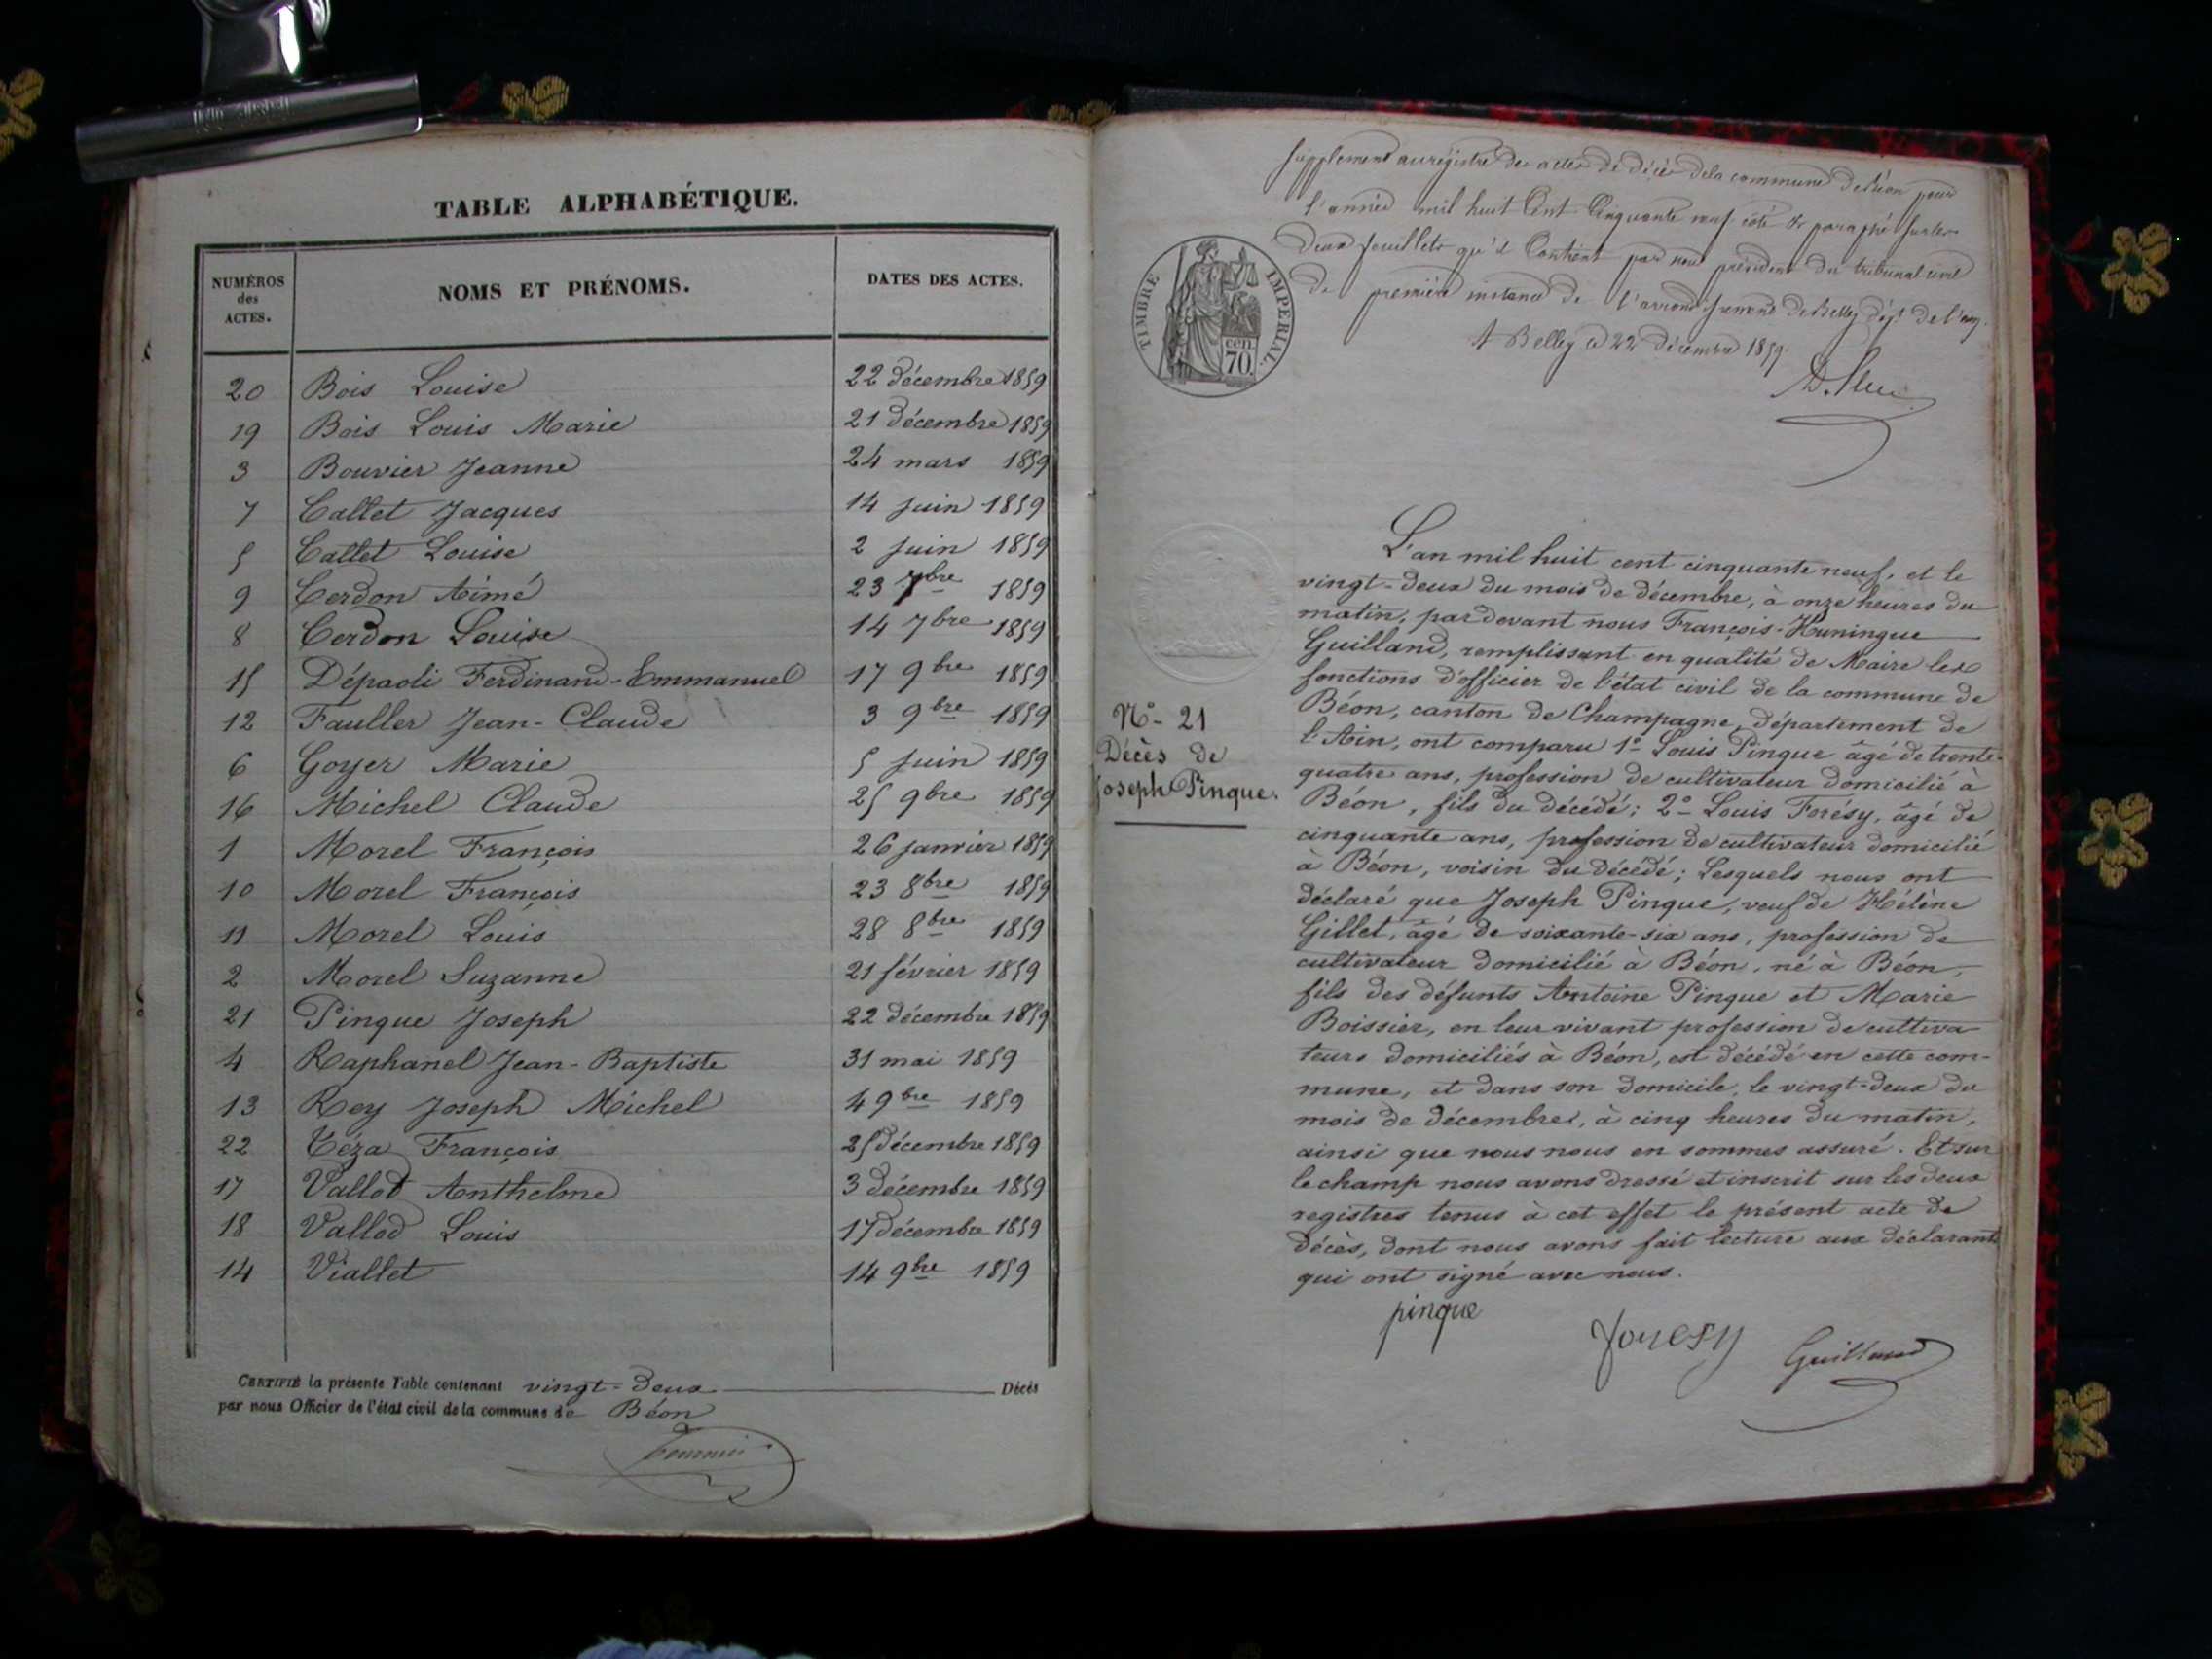 TABLE ALPHABÉTIQUE.
NUMÉROS des ACTES. NOMS ET PRÉNOMS. DATES DES ACTES.
20 Bois Louise 22 décembre 1859
19 Bois Louis Marie 21 décembre 1859
3 Bouvier Jeanne 24 mars 1859
7 Callet Jacques 14 juin 1859
5 Callet Louise 2 juin 1859
9 Cerdon Aimé 23 7bre 1859
8 Cerdon Louise 14 7bre 1859
15 Dépaoli Ferdinand-Emmanuel 17 9bre 1859
12 Fauller Jean-Claude 3 9bre 1859
6 Goyer Marie 5 juin 1859
16 Michel Claude 25 9bre 1859
1 Morel François 26 janvier 1859
10 Morel François 23 8bre 1859
11 Morel Louis 28 8bre 1859
2 Morel Suzanne 21 février 1859
21 Pinque Joseph 22 décembre 1859
4 Raphanel Jean-Baptiste 31 mai 1859
13 Rey Joseph Michel 4 9bre 1859
22 Téza François 25 décembre 1859
17 Vallod Anthelme 3 décembre 1859
18 Vallod Louis 17 décembre 1859
14 Viallet 14 9bre 1859
CERTIFIÉ la présente Table contenant vingt-deux Décès
par nous Officier de l'état civil de la commune de Béon
supplement au registre des actes de décès dela commune de Béon pour
l'année mil huit Cent Cinquante neuf coté & paraphé sur les
deux feuillets qu'il Contient par nous président du tribunal civil
de première instance de l'arrondissement de Belley dépt de l'ain.
A Belley ce 22 décembre 1859.
TIMBRE IMPÉRIAL.
cen.
70.
N°- 21
Décès de
Joseph Pinque.
L'an mil huit cent cinquante neuf, et le
vingt-deux du mois de décembre, à onze heures du
matin, pardevant nous François-Huningue
Guilland, remplissant en qualité de Maire les
fonctions d'officier de l'état civil de la commune de
Béon, canton de Champagne, département de
l'Ain, ont comparu 1° Louis Pinque âgé de trente-
quatre ans, profession de cultivateur domicilié à
Béon, fils du décédé; 2° Louis Forésy, âgé de
cinquante ans, profession de cultivateur domicilié
à Béon, voisin du décédé; Lesquels nous ont
déclaré que Joseph Pinque, veuf de Hélène
Gillet, âgé de soixante-six ans, profession de
cultivateur domicilié à Béon, né à Béon,
fils des défunts Antoine Pinque et Marie
Boissier, en leur vivant profession de cultiva-
teurs domiciliés à Béon, est décédé en cette com-
mune, et dans son domicile, le vingt-deux du
mois de décembre, à cinq heures du matin,
ainsi que nous nous en sommes assuré. Et sur
le champ nous avons dressé et inscrit sur les deux
registres tenus à cet effet le présent acte de
décès, dont nous avons fait lecture aux déclarants
qui ont signé avec nous.
pinque
foresy
Guilland